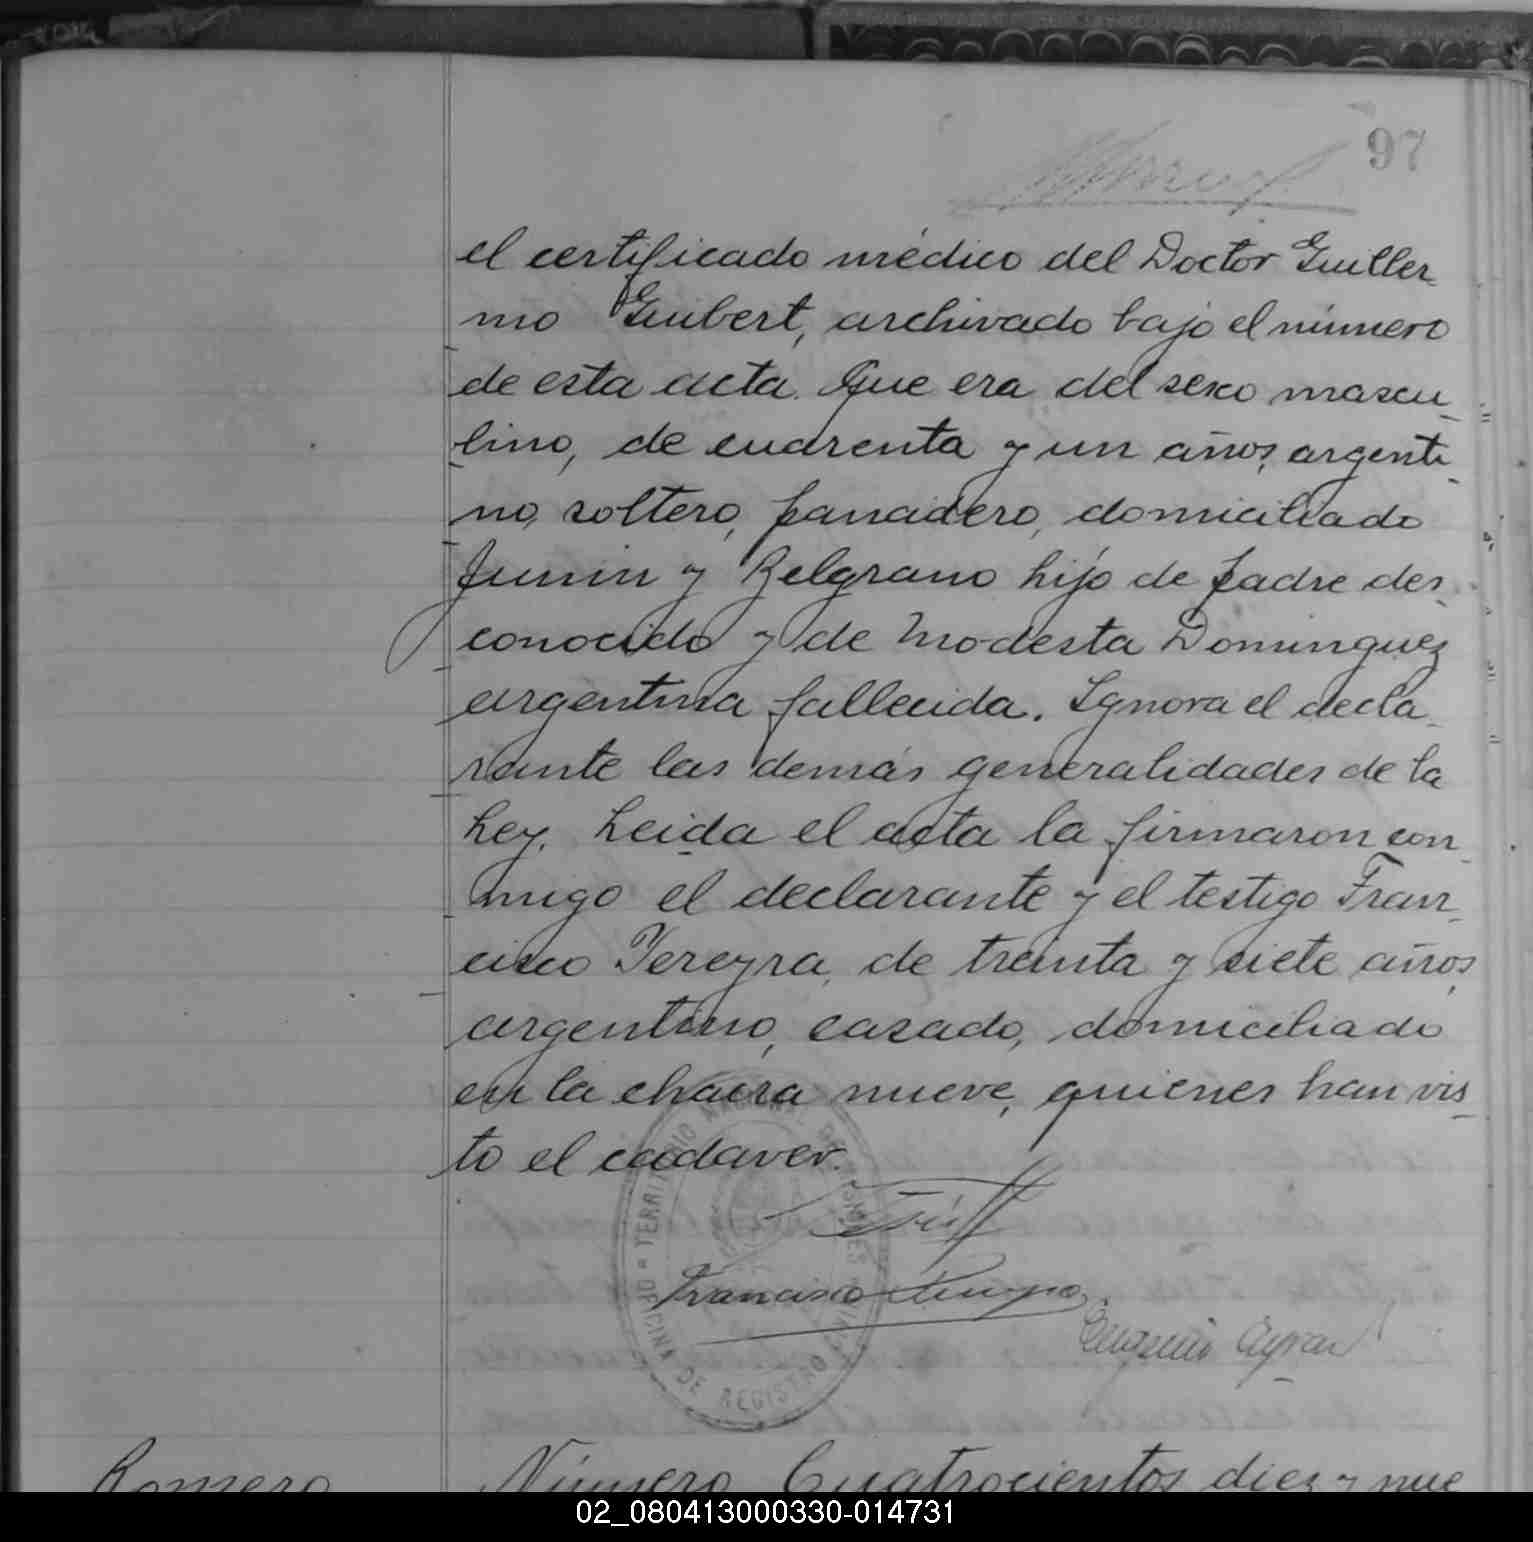 97
el certificado médico del Doctor Guiller
mo Guibert, archivado bajo el número
de esta acta. Que era del sexo mascu_
lino, de cuarenta y un años, argenti_
no, soltero, panadero, domiciliado
Junin y Belgrano hijo de padre des_
conocido y de Modesta Dominguez
argentina fallecida. Ignora el decla_
rante las demás generalidades de la
Ley. Leida el acta la firmaron con_
migo el declarante y el testigo Fran_
cisco Pereyra, de treinta y siete años,
argentino, casado, domiciliado
en la chacra nueve, quienes han vis_
to el cadaver.
Francisco
Eugenio
TERRITORIO NACIONAL DE MISIONES
OFICINA DE REGISTRO CIVIL
Romero
Número Cuatrocientos diez y nue
02_080413000330-014731